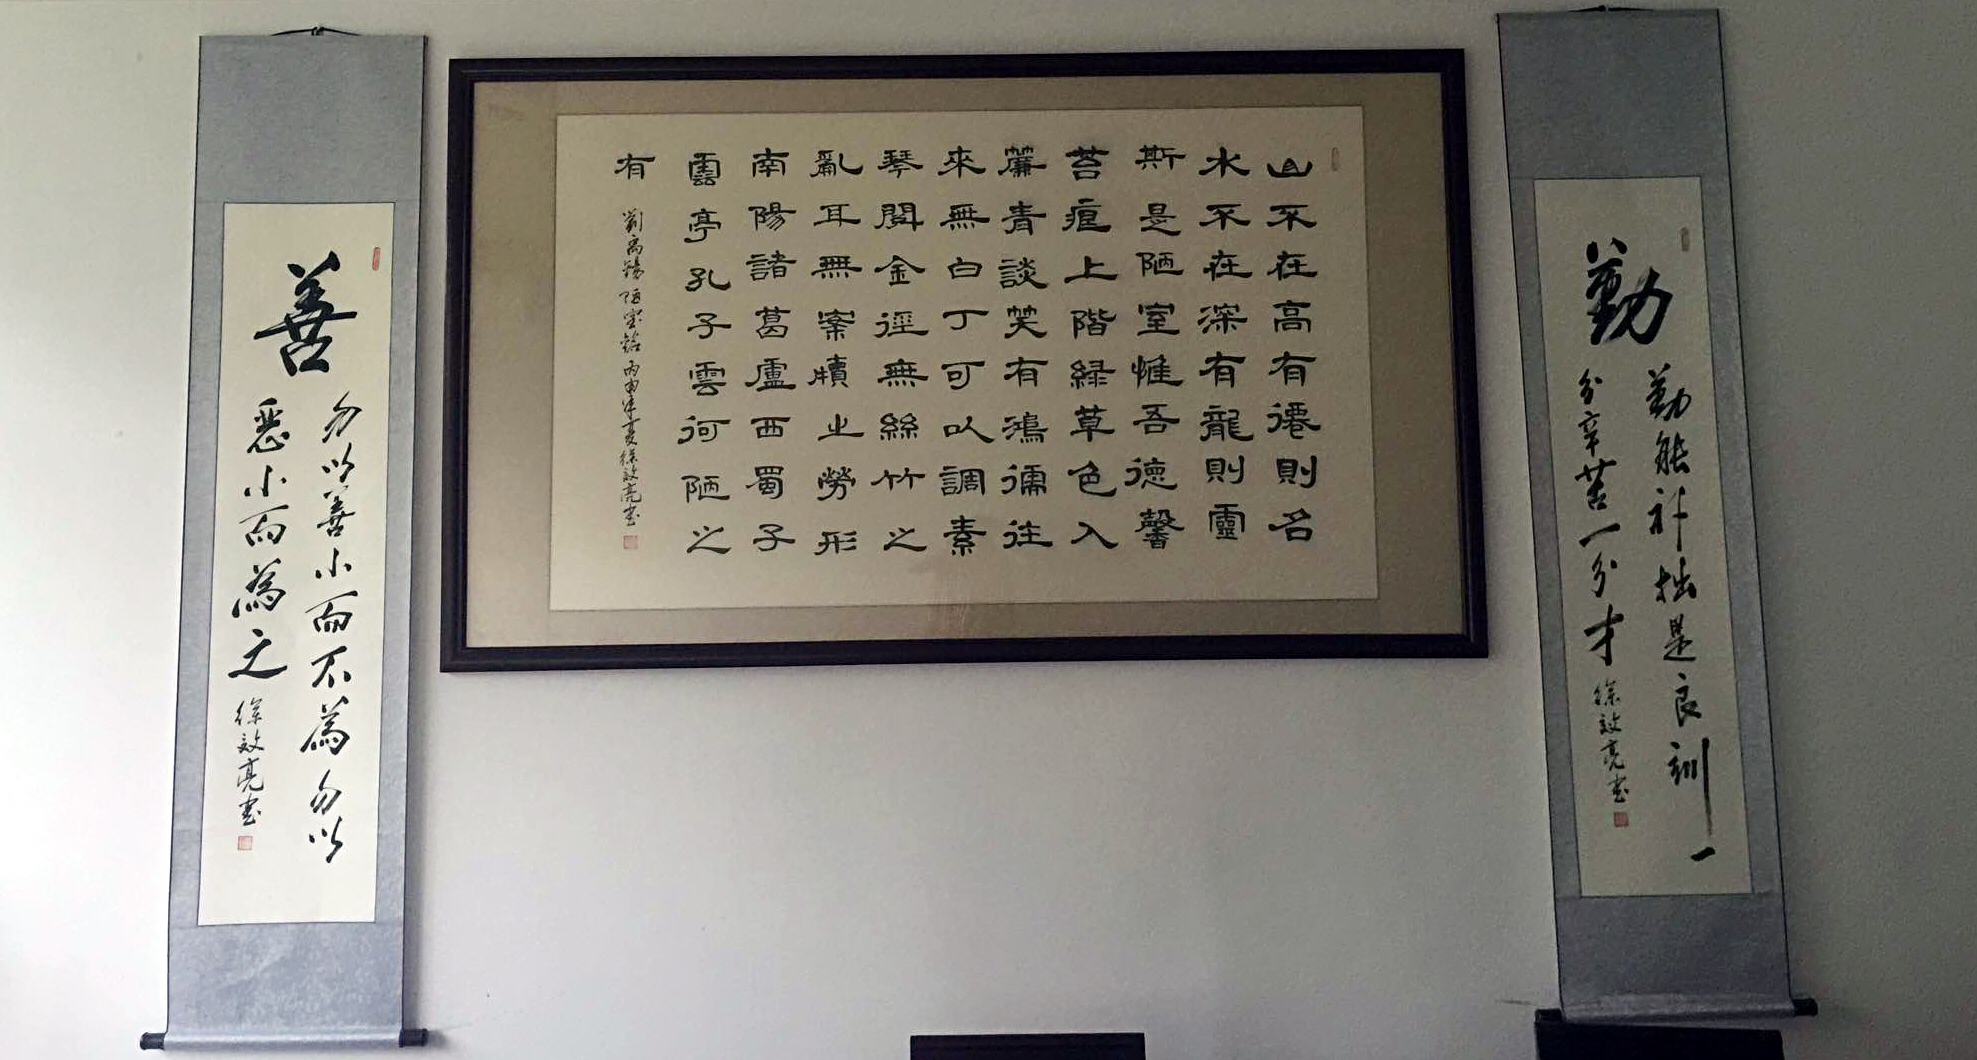 勤
勤能补拙是良訓一
分辛苦一分才
徐效亮书
山不在高有僊則名
水不在深有龍則靈
斯是陋室惟吾德馨
苔痕上階緑草色入
簾青談笑有鴻儒往
來無白丁可以調素
琴閲金徑無絲竹之
亂耳無案牘之勞形
南陽諸葛廬西蜀子
雲亭孔子雲何陋之
有
劉禹錫陋室銘丙申年夏徐效亮书
善
勿以善小而不為勿以
惡小而為之
徐效亮书